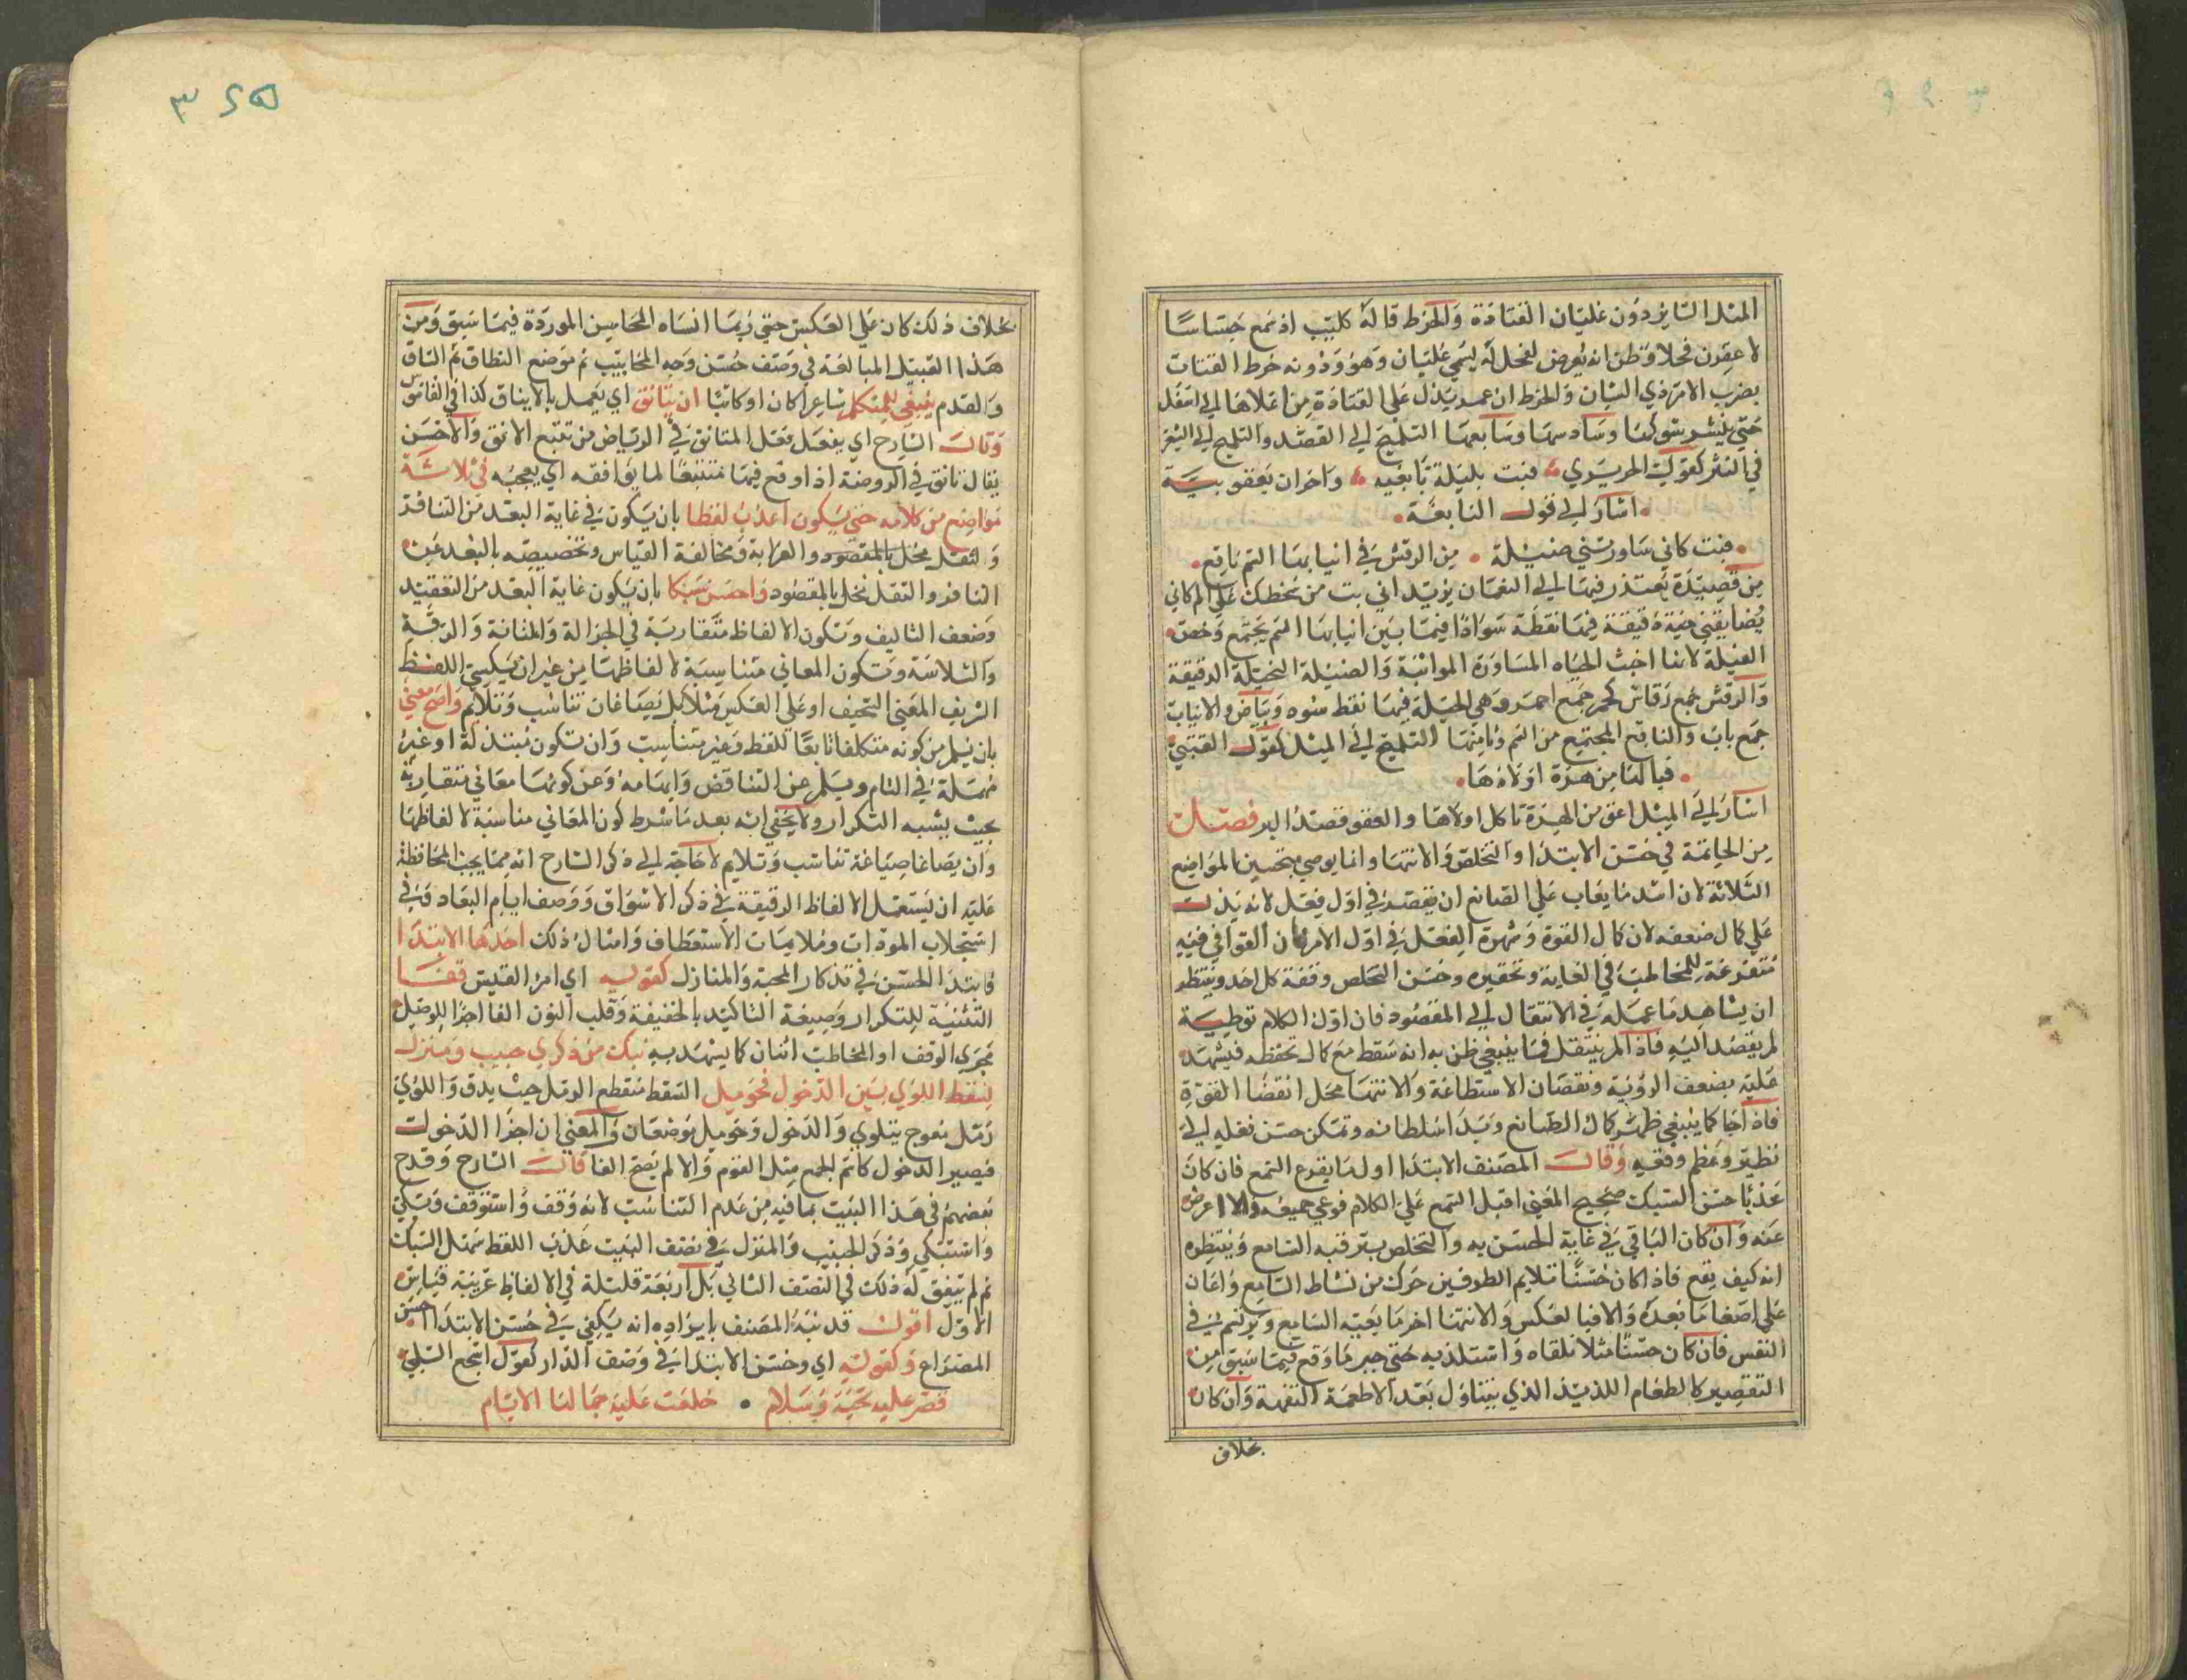 المثل السائر دون عليان القتادة والخرط قاله كليب اذ سمع جساسا
لاعقرن فحلا وظن انه يعرض لفحل له يسمى عليان وهو ودونه خرط القتات
يضرب الامر ذي الشان والخرط ان تمر يدك على القتادة من اعلاها الى اسفل
حتى ينشر شوكها وسادسها وسابعها التلميح الى القصد والتلميح الى الشعر
في النثر كقول الحريري فبت بليلة نابغيه واحزان يعقوبية
اشار الى قول النابغة
فبت كاني ساورتني ضئيلة من الرقش في انيابها السم ناقع
من قصيدة يعتذر فيها الى النعمان يريد اني بت من سخطك على الم كاني
يضايقني حية دقيقة فيها نقطة سوادا فيما بين انيابها السم يجتمع وخص
الضيلة لانها اخبث الحياه المساورة المواثبة والضئيلة النحيلة الدقيقة
والرقش جمع رقاش كحمر جمع احمر وهي الحية فيها نقط سود وبياض والانياب
جمع باب والناقع المجتمع من السم وثامنها التلميح الى المثل كقول القتبي
فيا لها من هرة اولادها
اشار الى المثل اعق من الهرة تاكل اولادها والعقوق ضد البر فصل
من الخاتمة في حسن الابتدا والتخلص والانتها وانما يوصي بتحسين المواضع
الثلاثة لان اشد ما يعاب على الصانع ان يقصر في اول فعل لانه يدل
على كمال ضعفه لان كمال القوة وشهوة الفعل في اول الامر فان القوافي فيه
متفرغة للمخاطب في الغاية وتحقيره وحسن التخلص وقفة كل احد وينتظر
ان يشاهد ما عمله في الانتقال الى المقصود فان اول الكلام توطية
لم يقصد اليه فاذا لم ينتقل فيما ينبغي ظن به انه سقط مع كمال تحفظه فيشهد
عليه بضعف الروية ونقصان الاستطاعة والانتها محل انقضا القوة
فاذا جا كما ينبغي ظهر كمال الصانع وبدا سلطانه وتمكن حسن فعله الى
نظير ونظم وفقه وقال المصنف الابتدا اول ما يقرع السمع فان كان
عذبا حسن السبك صحيح المعنى اقبل السمع على الكلام فوعى جميعه والا اعرض
عنه وان كان الباقي في غاية الحسن به والتخلص يترقبه السامع وينتظره
انه كيف يقع فاذا كان حسنا تلايم الطرفين حرك من نشاط السامع واعان
على اصغا ما بعده والا فبالعكس والانتها اخر ما يعيه السامع ويرتسم في
النفس فان كان حسنا مثلا تلقاه واستلذ به حتى جبر ما وقع فيما سبق من
التقصير كالطعام اللذيذ الذي يتناول بعد الاطعمة التفهة وان كان
بخلاف
٣٢٥
بخلاف ذلك كان على العكس حتى ربما انساه المحاسن الموردة فيما سبق ومن
هذا القبيل المبالغة في وصف حسن وجه الحبايب ثم موضع النطاق ثم الساق
والقدم ينبغي للمتكلم شاعرا كان او كاتبا ان يتانق اي يعمل بالايناق كذا في القاموس
وقال الشارح اي يفعل فعل المتانق في الرياض من تتبع الانق والاحسن
يقال تانق في الروضة اذا وقع فيها متتبعا لما يوافقه اي يعجبه في ثلاثة
مواضع من كلامه حتى يكون اعذب لفظا بان يكون في غاية البعد من التنافر
والثقل مخل بالمقصود والغرابة ومخالفة القياس وتخصيصه بالبعد عن
التنافر والثقل مخل بالمقصود واحسن سبكا بان يكون غاية البعد من التعقيد
وضعف التاليف وتكون الالفاظ متقاربة في الجزالة والمتانة والرقة
والسلاسة وتكون المعاني متناسبة لالفاظها من غير ان يكسى اللفظ
الشريف المعنى السخيف او على العكس مثلا بل يصاغان تناسب وتلايم واصح معنى
بان يسلم من كونه متكلفا تابعا للفظ وغير متناسب وان تكون مبتذلة او غير
مهملة في التام ويسلم عن التناقض وايهامه وعن كونها معاني متقاربة
بحيث يشبه التكرار ولا يخفى انه بعد ما شرط كون المعاني مناسبة لالفاظها
وان يصاغا صياغة تناسب وتلايم لا حاجة الى ذكر الشارح انه مما يجب المحافظة
عليه ان يستعمل الالفاظ الرقيقة في ذكر الاشواق ووصف ايام البعاد وفي
استجلاب المودات وملاينات الاستعطاف وامثال ذلك احدها الابتدا
فابتدا الحسن في تذكار المحبة والمنازل كقوله اي امرا القيس قفا
التثنية للتكرار وصيغة التاكيد بالخفيفة وقلب النون الفا اجرا للوصل
مجرى الوقف او المخاطب اثنان كما يشهد به نبك من ذكرى حبيب ومنزل
بسقط اللوى بين الدخول فحومل السقط منقطع الرمل حيث يدق واللوى
رمل معوج يتلوى والدخول وحومل موضعان والمعنى ان اجزا الدخول
فيصير الدخول كاسم الجمع مثل القوم والا لم يصح الفا قال الشارح وقدح
بعضهم في هذا البيت بما فيه من عدم التناسب لانه وقف واستوقف وبكى
واستبكى وذكر الحبيب والمنزل في نصف البيت عذب اللفظ سهل السبك
ثم لم يتفق له ذلك في النصف الثاني بل اربعة قليلة في الالفاظ غريبة قياس
الاول اقول قد نبه المصنف بايراده انه يكفي في حسن الابتدا حسن
المصراع وكقوله اي وحسن الابتدا في وصف الدار كقول اشجع السلمي
قصر عليه تحية وسلام خلعت عليه جمالها الايام